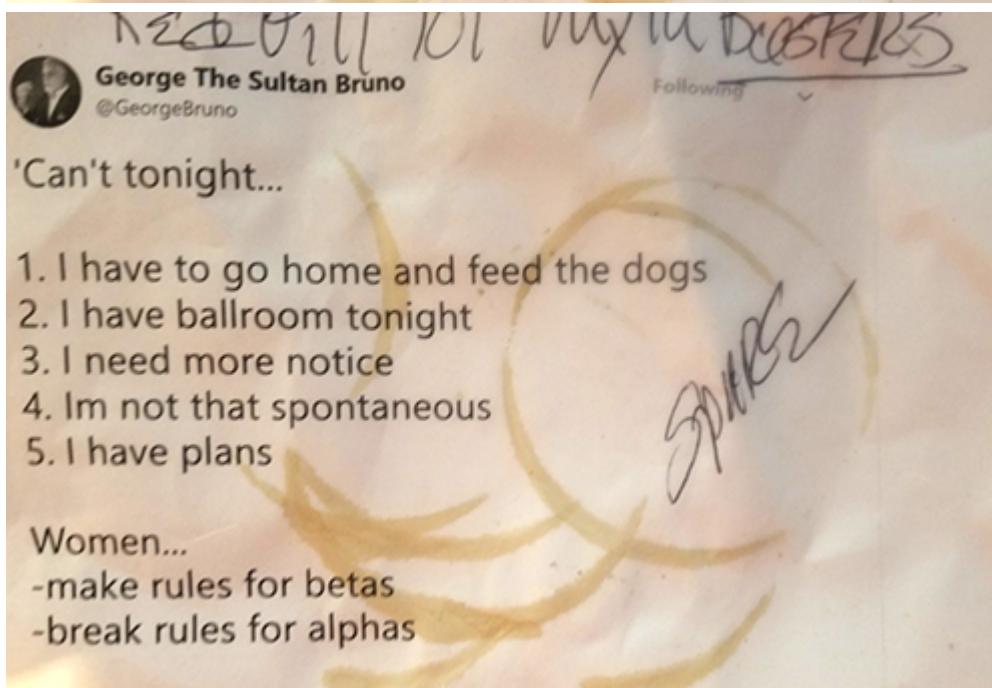 Red Pill 101 Myth BUSTERS
George The Sultan Bruno
Following
@GeorgeBruno
'Can't tonight...
1. I have to go home and feed the dogs
2. I have ballroom tonight
3. I need more notice
4. Im not that spontaneous
5. I have plans
Women...
-make rules for betas
-break rules for alphas